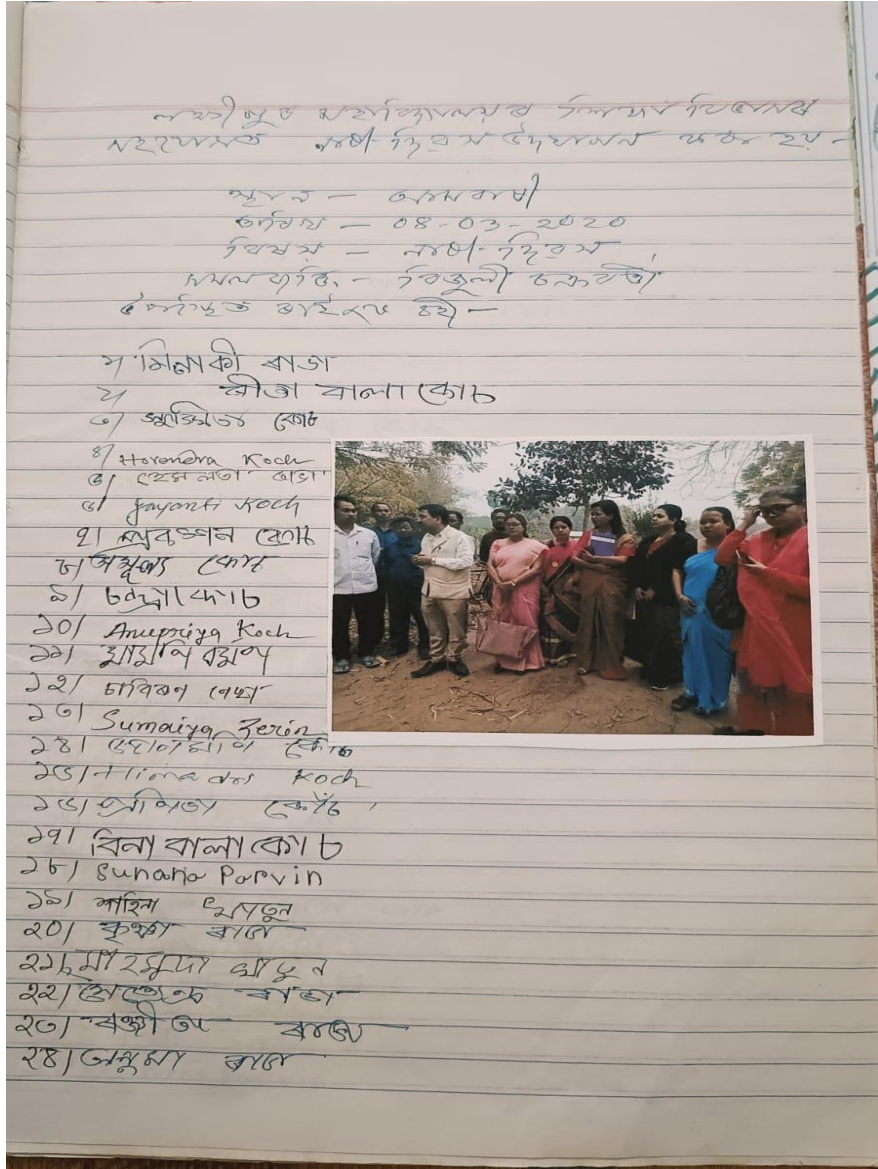 লক্ষীপুৰ মহাবিদ্যালয়ৰ শিক্ষা বিভাগৰ
সহযোগত নাৰী দিৱস উদযাপন কৰা হয় -
স্থান -
তাৰিখ - 08-03-2020
বিষয় - নাৰী দিৱস
বিজুলী চক্রবৰ্তী
উপস্থিত ব্যক্তিৰ চহী -
১/ মিনাকী ৰাভা
২/ ৰীতা বালা কোচ
৩/ কোচ
৪/ Harendra Koch
৫/ হেমলতা ৰাভা
৬/ Jayanti Koch
৭। কোচ
৮/ অমূল্য কোচ
৯/ চন্দ্ৰা কোচ
১০/ Anupriya Koch
১১/ মামনি বৰ্মন
১২/
১৩/ Sumaiya Zerin
১৪। কোচ
১৫/ Koch
১৬/ কোঁচ
১৭/ বিনা বালা কোচ
১৮/ Sunana Parvin
১৯/ শাহিনা খাতুন
২০/ কৃষ্ণা ৰাভা
২১/ মাহমুদা খাতুন
২২/ ৰাভা
২৩/ ৰঞ্জীতা ৰাভা
২৪/ অনুমা ৰাভা